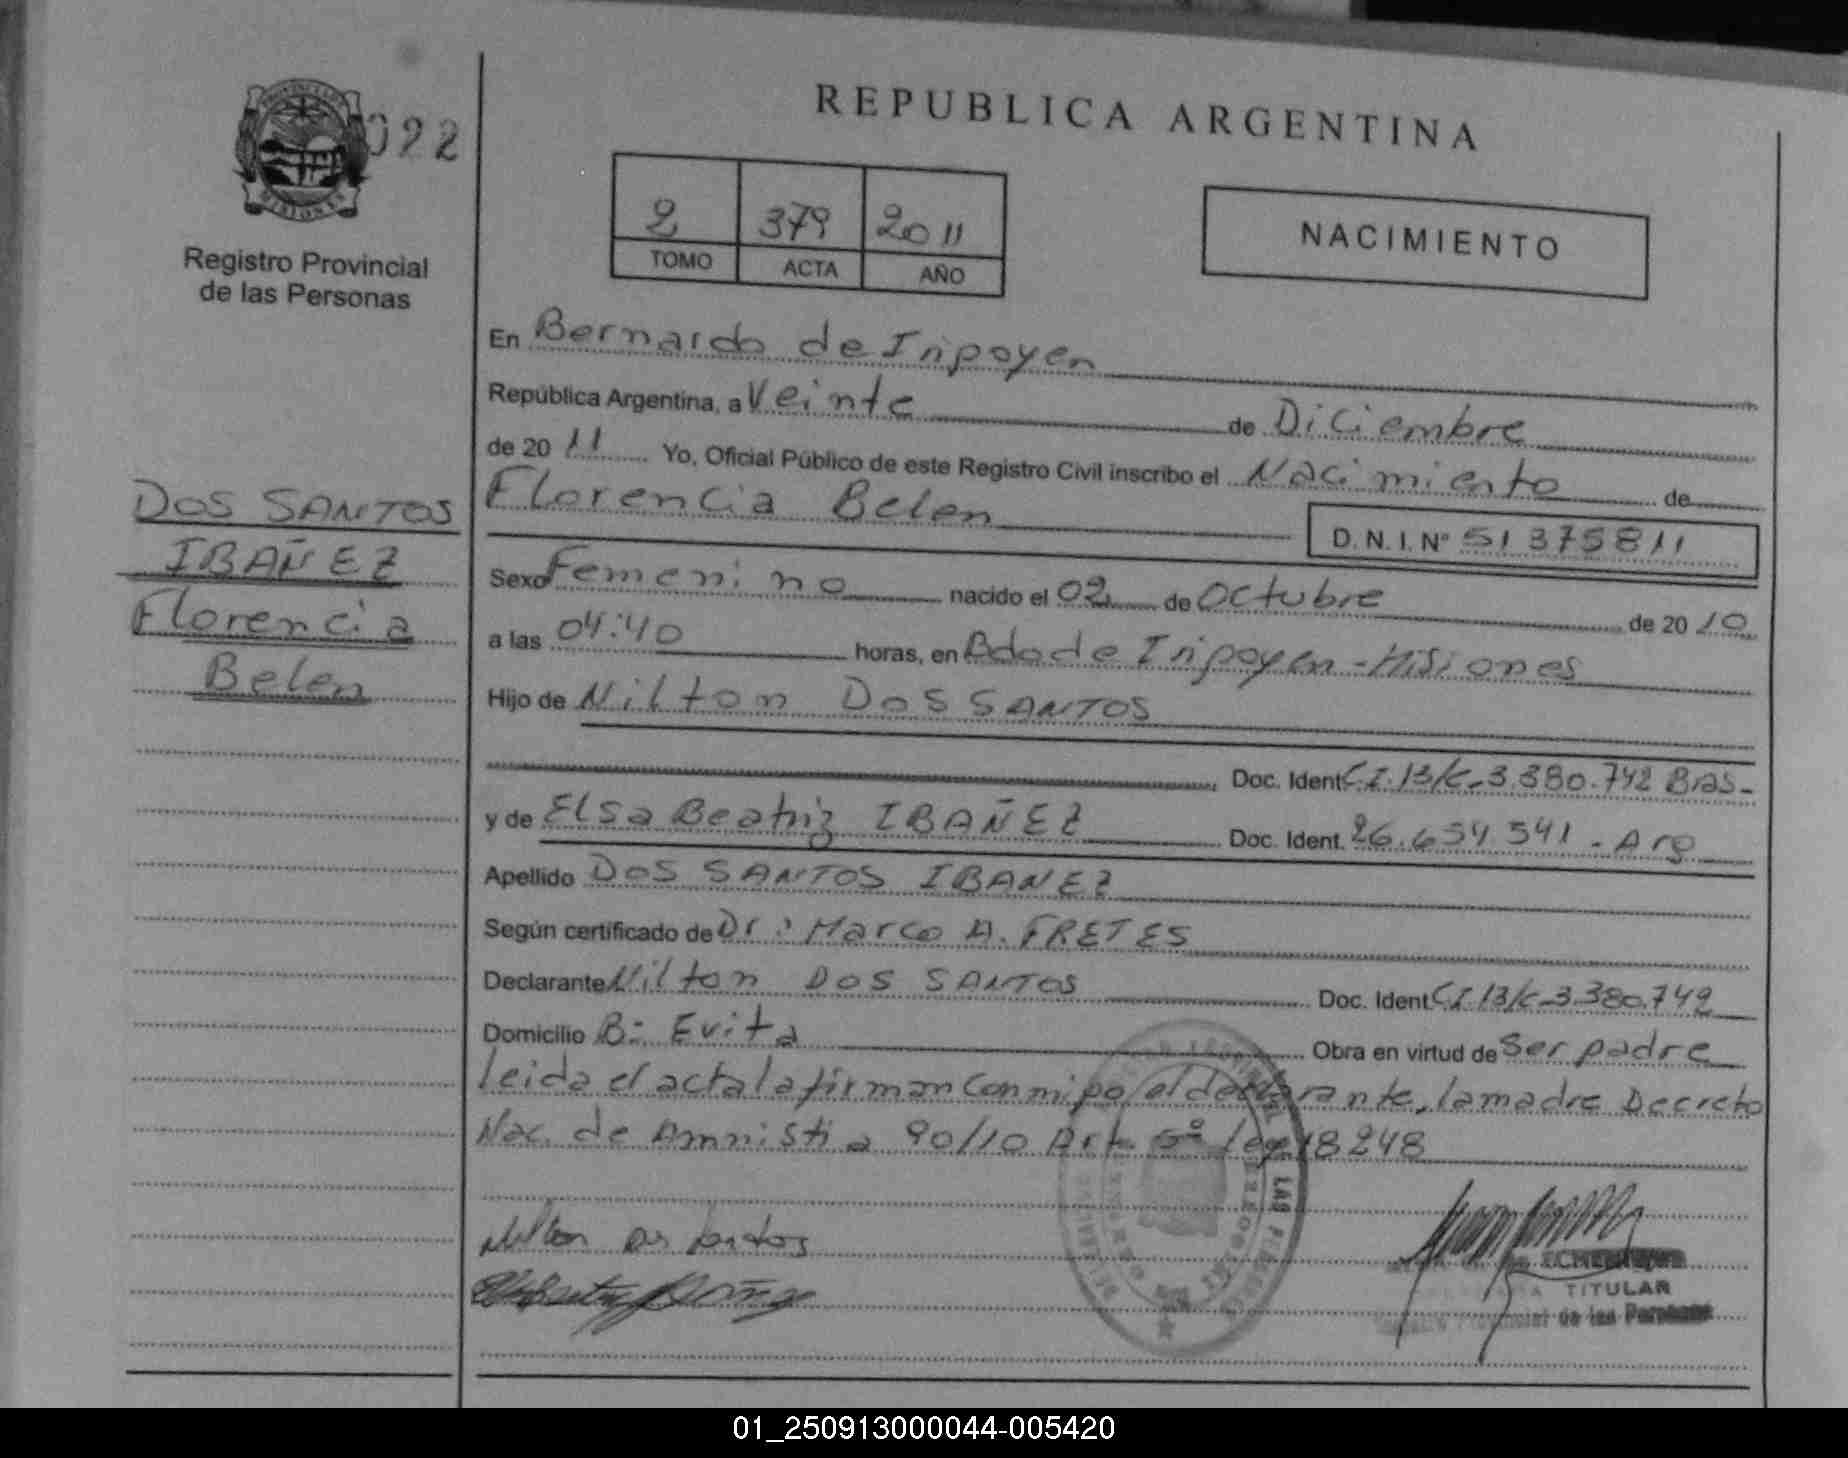 022
MISIONES
Registro Provincial
de las Personas
DOS SANTOS
IBAÑEZ
Florencia
Belen
REPUBLICA ARGENTINA
2 379 2011
TOMO ACTA AÑO
NACIMIENTO
En Bernardo de Iripoyen
República Argentina, a Veinte de Diciembre
de 20 11 Yo, Oficial Público de este Registro Civil inscribo el Nacimiento de
Florencia Belen
D.N.I. Nº 51375811
Sexo Femenino nacido el 02 de Octubre de 20 10
a las 04:40 horas, en Bdo de Iripoyen - Misiones
Hijo de Nilton DOS SANTOS
Doc. Ident C.I.13/C-3.380.742 Bras-
y de Elsa Beatriz IBAÑEZ Doc. Ident. 26.654.541 - Arg
Apellido DOS SANTOS IBANEZ
Según certificado de Dr: Marco A. FRETES
Declarante Nilton DOS SANTOS Doc. Ident C.I.13/C-3.380.742
Domicilio B: Evita Obra en virtud de Ser padre
leida el acta la firman Con mipo el declarante, la madre Decreto
Nac. de Amnistia 90/10 Art. 5º ley 18248
Nilton Dos Santos
TITULAR
Provincial de las Personas
01_250913000044-005420